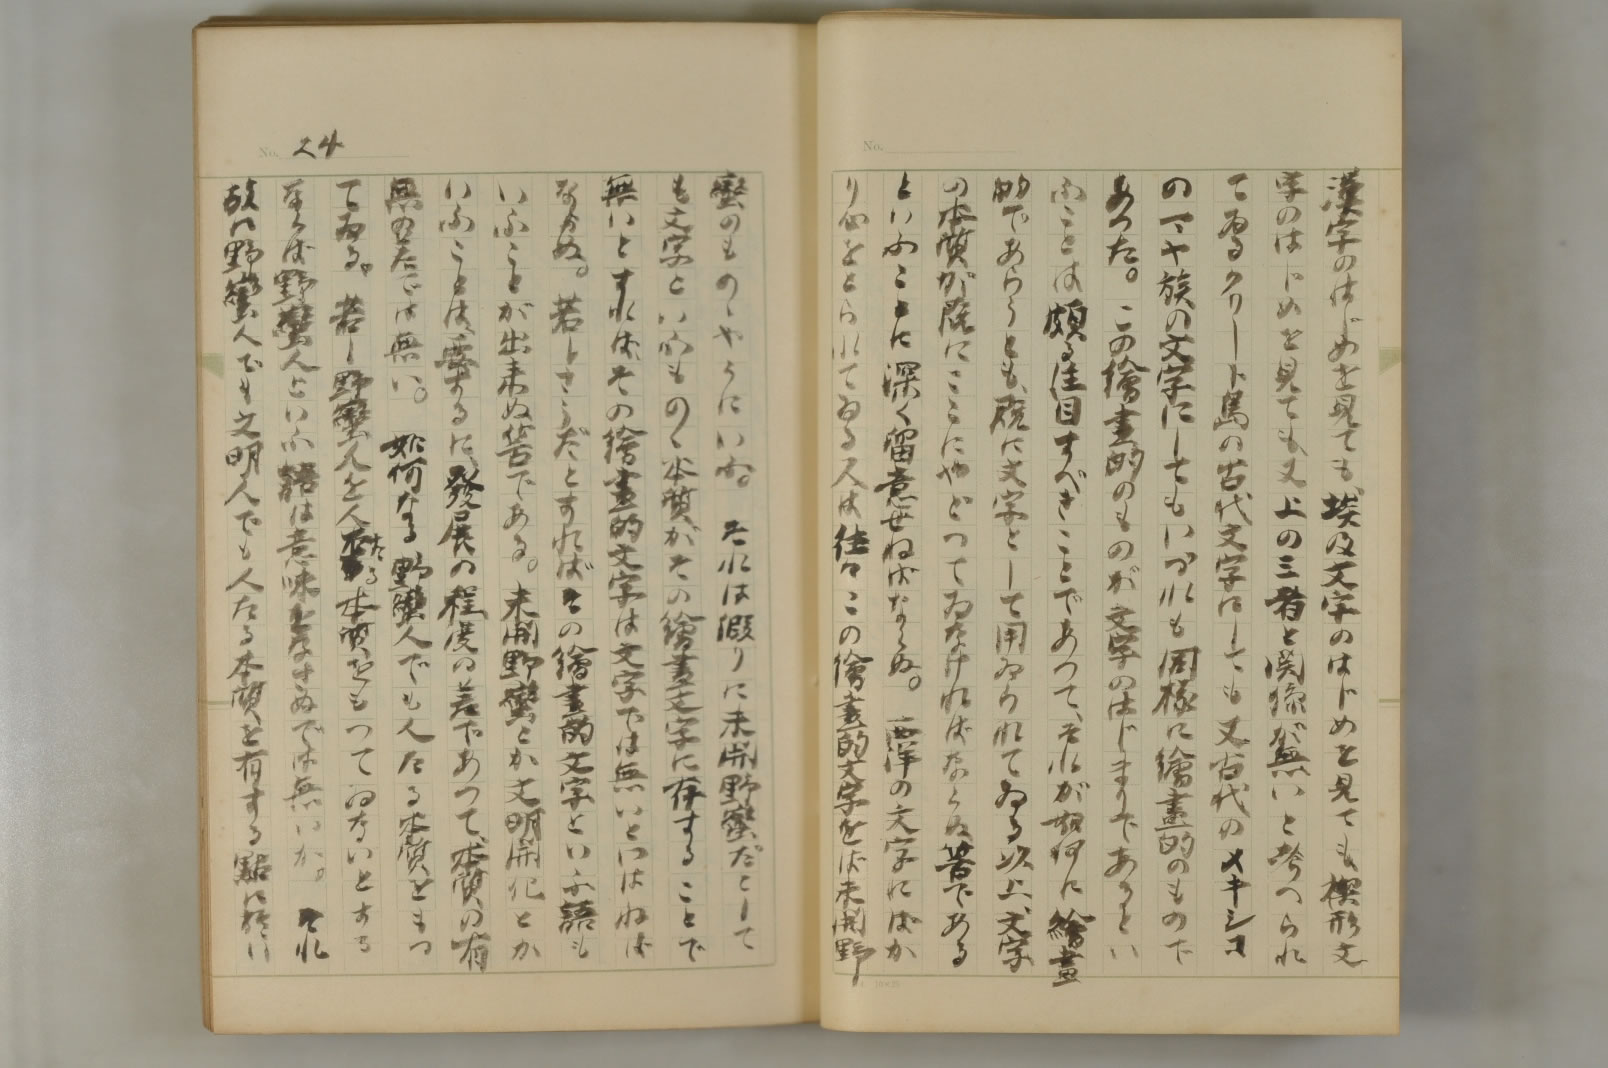 No.
漢字のはじめを見ても、埃及文字のはじめを見ても、楔形文
字のはじめを見ても、又上の三者と関係が無いと考へられ
てゐるクリート島の古代文字にしても又古代のメキシコ
のマヤ族の文字にしてもいづれも同様に繪畫的のもので
あつた。この繪畫的のものが文字のはじまりであるとい
ふことは頗る注目すべきことであつて、それが如何に繪畫
的であらうとも、既に文字として用ゐられてゐる以上、文字
の本質が既にここにやどつてゐなければならぬ筈である
といふことに深く留意せねばならぬ。西洋の文字にばか
り心をとられてゐる人は往々この繪畫的文字をば未開野
No. 24
蠻のもののやうにいふ。それは假りに未開野蠻だとして
も文字といふものゝ本質がその繪畫文字に存することで
無いとすれば、その繪畫的文字は文字では無いといはねば
ならぬ。若しさうだとすればその繪畫的文字といふ語も
いふことが出来ぬ筈である。未開野蠻とか文明開化とか
いふことは、要するに、發展の程度の差であつて、本質の有
無の差では無い。如何なる野蠻人でも人たる本質をもつ
てゐる。若し野蠻人を人たる本質をもつてゐないとする
ならば野蠻人といふ語は意味をなさぬでは無いか。それ
故に野蠻人でも文明人でも人たる本質を有する點に於い